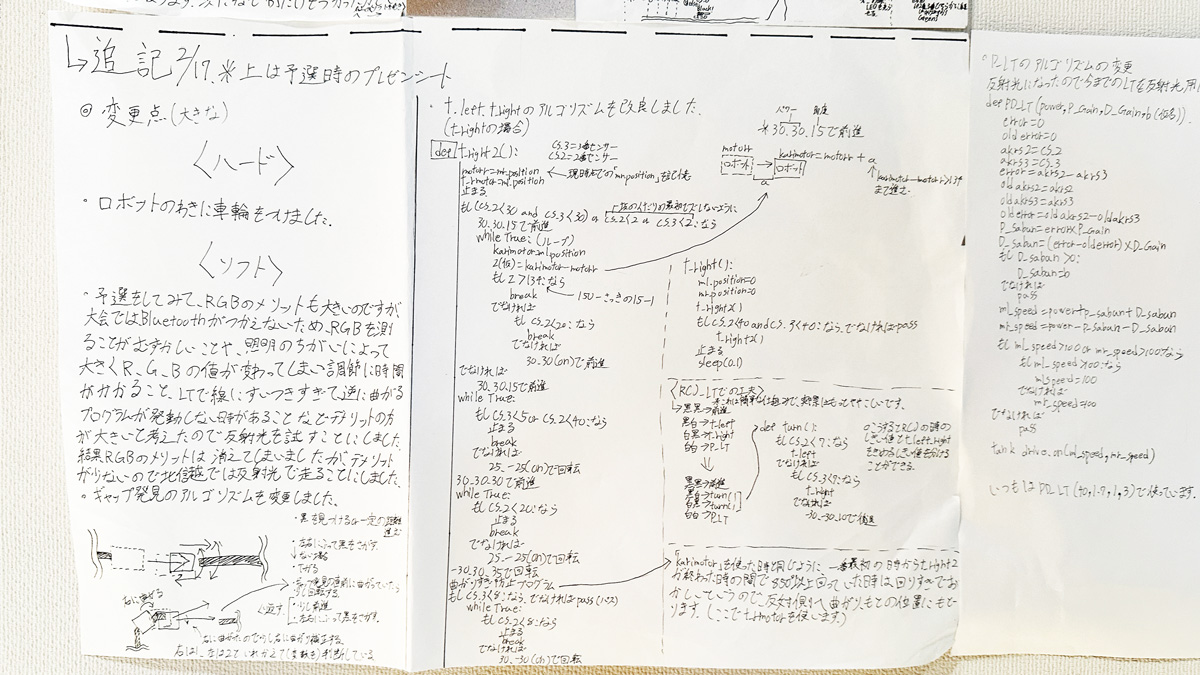 ↳追記 2/17. ※上は予選時のプレゼンシート
◎ 変更点(大きな)
〈ハード〉
・ロボットのわきに車輪をつけました.
〈ソフト〉
・予選をしてみて、RGBのメリットも大きいのですが
大会ではBluetoothがつかえないため、RGBを測
ることがむずかしいことや、照明のちがいによって
大きくR、G、Bの値が変わってしまい調節に時間
がかかること、LTで線にすいつきすぎて、逆に曲がる
プログラムが発動しない時があることなどデメリットの方
が大きいと考えたので反射光を試すことにしました.
結果RGBのメリットは消えてしまいましたが、デメリット
がないので北信越では反射光で走ることにしました.
・ギャップ発見のアルゴリズムを変更しました.
・黒を見つけるか一定の距離
・左右にふって黒をさがす.
・下がる
・少し前進
・左右にふって黒をさがす.
・t_left.t_rightのアルゴリズムを改良しました.
(t_rightの場合)
def t_right2():
CS.3=3番センサー
CS.2=2番センサー
止まる
30.30.15で前進
while True:(ループ)
karimotor=ml.position
2(仮)=karimotor-motorr
もし2>134:なら
break
でなければ
もしCS.2<20:なら
break
でなければ
30.30(on)で前進
でなければ
30.30.15で前進
while True:
もしCS.3<5 or CS.2<40:なら
止まる
break
でなければ
25.-25(on)で回転
30.30.30で前進
while True:
もしCS.2<20:なら
止まる
break
でなければ
25.-25(on)で回転
-30.30.35で回転
曲がりすぎ防止プログラム
もしCS.3<8:なら、でなければpass(パス)
while True:
もしCS.2<8:なら
止まる
break
でなければ
30.-30(on)で回転
※30.30.15で前進
motorr
ロボット
karimotor=motorr+a
ロボット
a
t_right():
ml.position=0
mr.position=0
t_right2()
もしCS.2<40 and CS.3<40:なら、でなければpass
t_right2()
止まる
sleep(0.1)
〈RC〉_LTでの工夫〉
黒黒→前進
黒白→t_left
白黒→t_right
白白→P_LT
黒黒→前進
黒白→turn()
白黒→turn()
白白→P_LT
def turn():
もしCS.2<7:なら
t_left
でなければ
もしCS.3<7:なら
t_right
でなければ
-30.-30.10で後進
ことができる.
「karimotor」を使った時と同じように、一番最初の時からt_right2
が終わった時の間で850°以上回っていた時は回りすぎでお
かしいというので、反対側へ曲がりもとの位置にもど
ります.(ここでt_rmotorを使います.)
・P_LTのアルゴリズムの変更
反射光になったので今までのLTを反射光用に
def PD_LT(power,P_Gain,D_Gain,b(仮名)):
error=0
olderror=0
akrs2=CS_2
akrs3=CS_3
error=akrs2-akrs3
oldakrs2=akrs2
oldakrs3=akrs3
olderror=oldakrs2-oldakrs3
P_sabun=error×P_Gain
D_sabun=(error-olderror)×D_Gain
もし D_sabun>0:
D_sabun=b
でなければ
pass
ml_speed=power+p_sabun+D_sabun
mr_speed=power-p_sabun-D_sabun
もしml_speed>100 or mr_speed>100なら
もしml_speed>100:なら
ml_speed=100
でなければ
mr_speed=100
でなければ
pass
tank_drive.on(ml_speed,mr_speed)